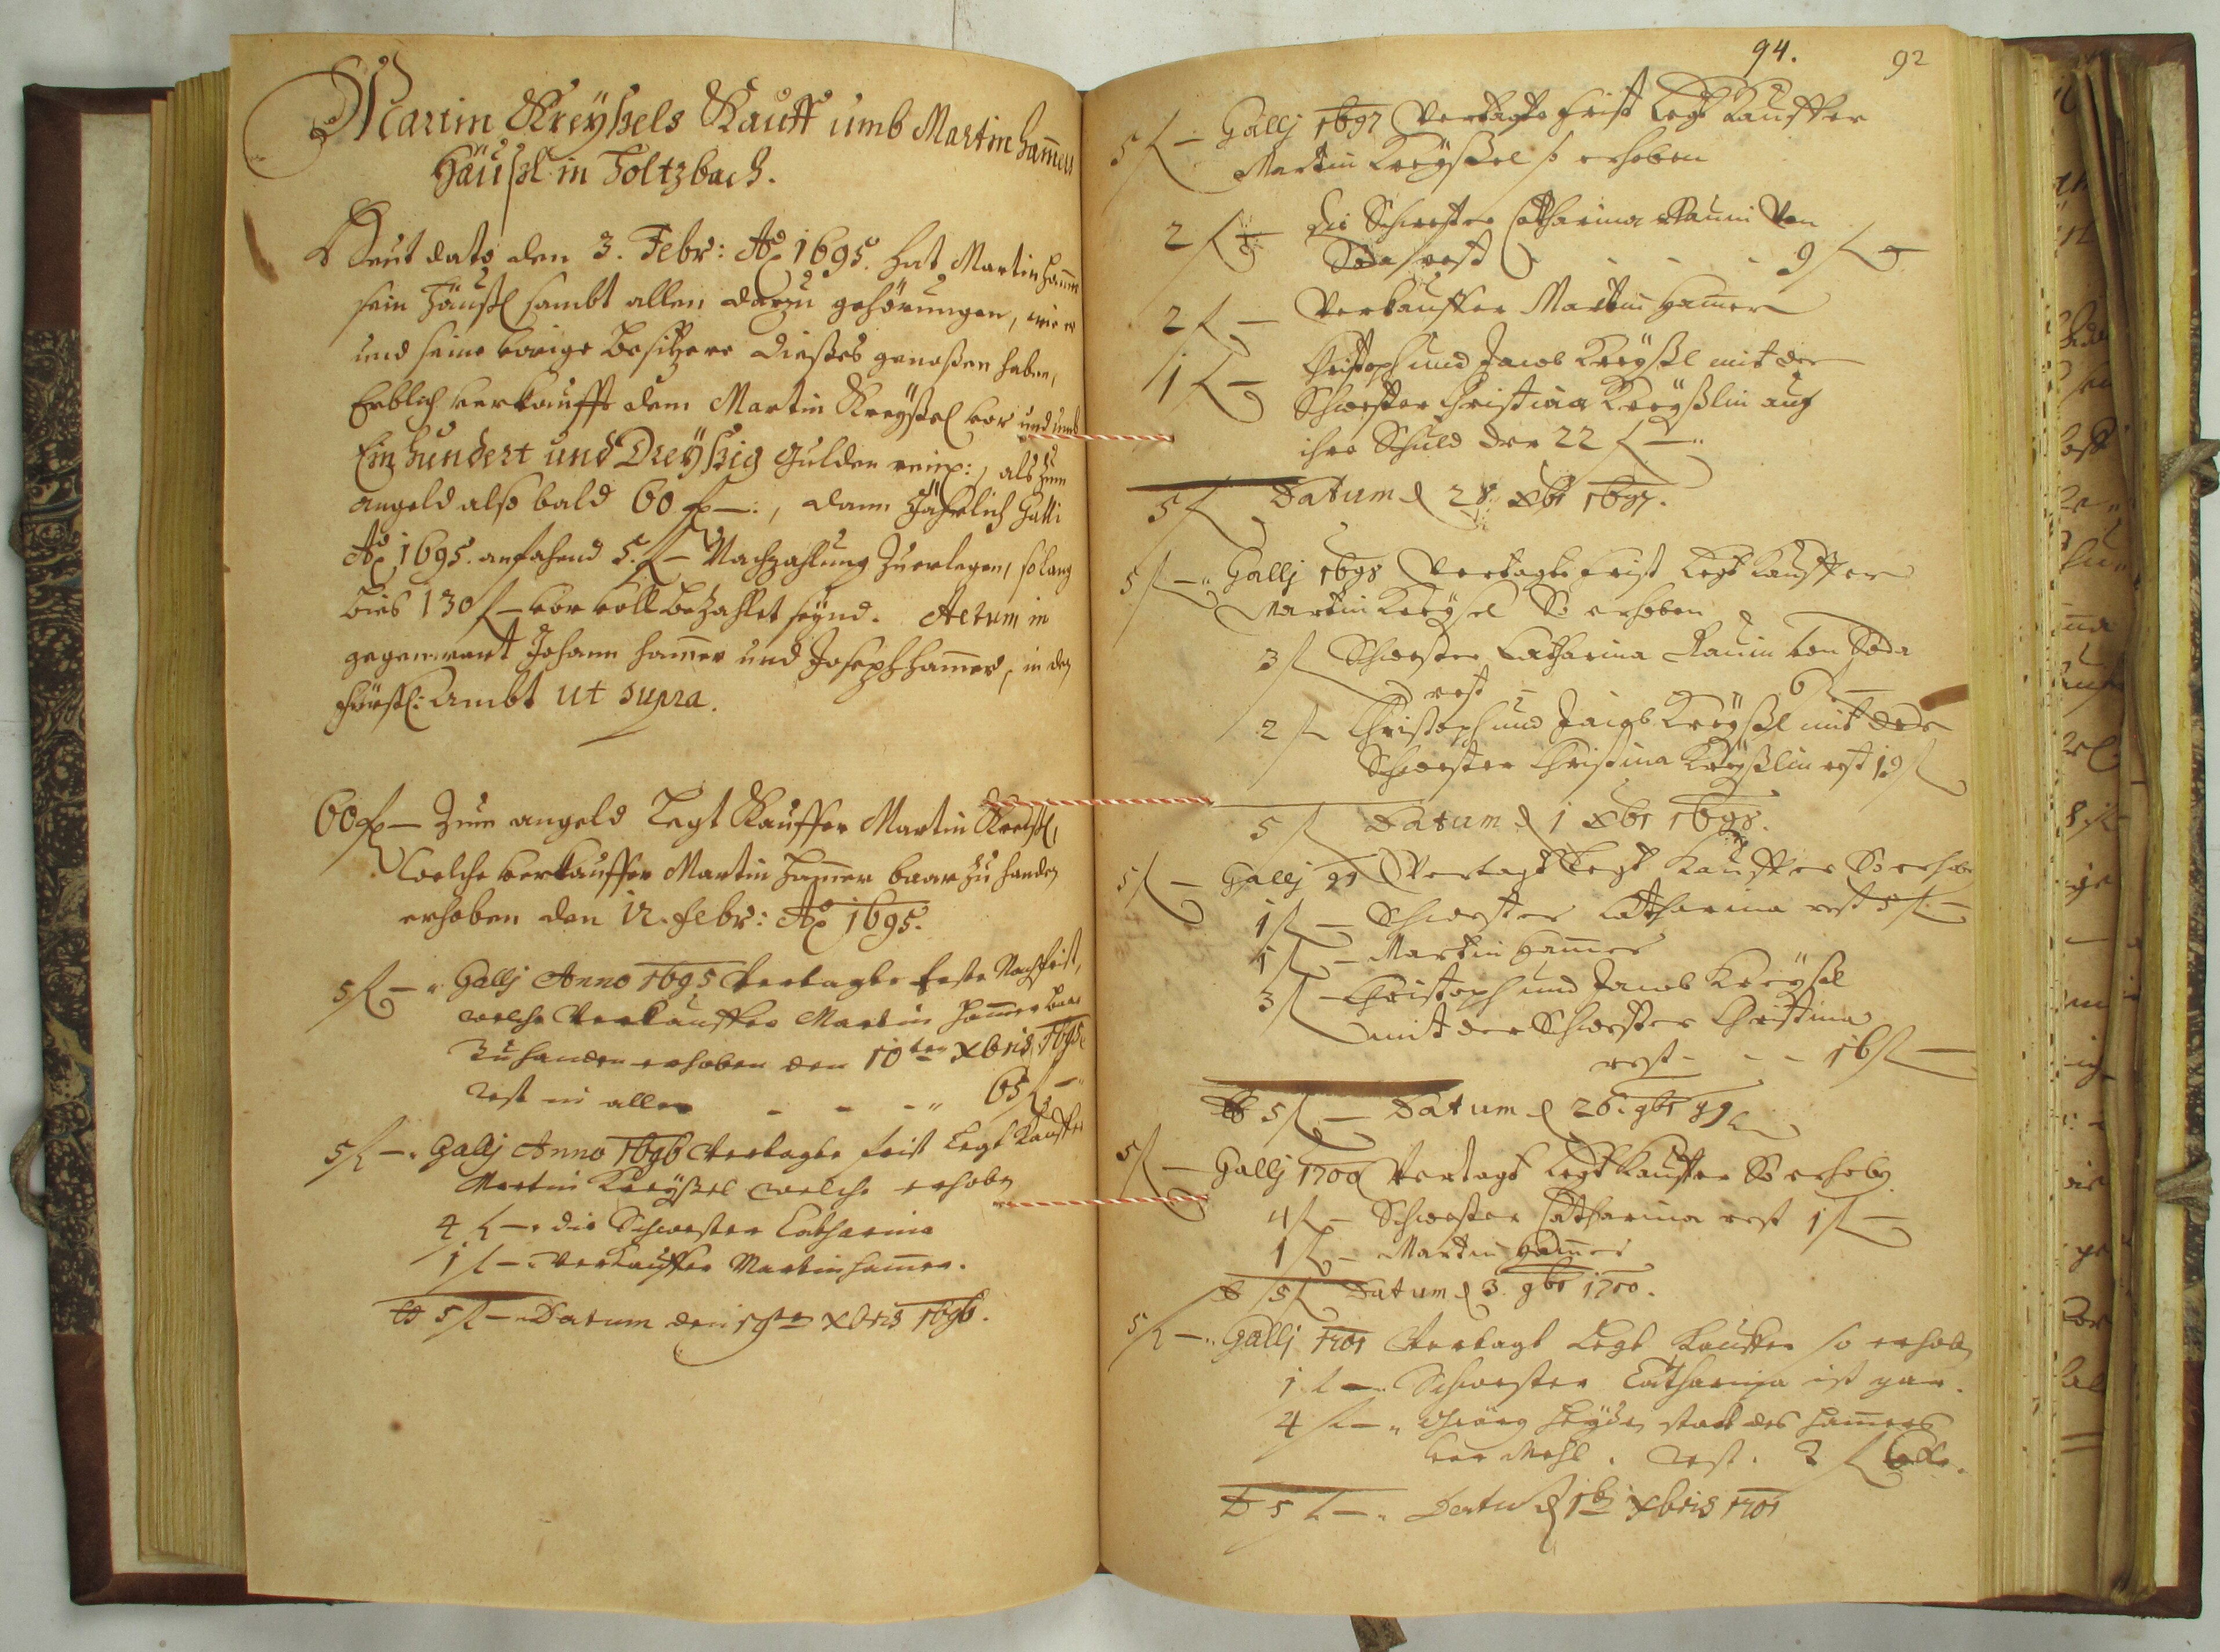 Martin Kreyßels Kauff umb Martin Ham̅ers
Häußl in Holtzbach.
Heut dato den 3. Febr: Ao 1695. hat Martin Ham̅er
sein Häußl sambt allen darzu gehörungen, wie er
und seine vorige Besitzere dießes genoßen haben,
Erblich verkaufft dem Martin Kreyßel vor und umb
Ein hundert und Dreyßig Gulden reinl:, als zum
angeld alßbald 60 f —:, dann Jährlich Galli
Ao 1695. anfahend 5. f — Nachzahlung Zuerlegen, so lang
bies 130 f — vor voll bezahlet seynd. Actum in
gegenwart Johann Ham̅er und Joseph Ham̅er, in der
fürstl: Ambt ut supra.
60 f — Zum angeld Legt Kauffer Martin Kreyßl,
Welche verkauffer Martin Ham̅er baar zu handen
erhoben den 12. Febr: Ao 1695.
5 f — " Gallj Anno 1695 Vertagte Erste Nachfrist,
welche Verkauffer Martin Ham̅er baar
Zu handen erhoben den 10ten Xbris 1695
Rest in allen - - - " 65 f —"
5 f —" Gallj Anno 1696 Vertagte frist Legt Kauffer
Martin Kreyßel welche erhoben
4 f —" die Schwester Catharina
1 f —" Verkauffer Martin Ham̅er.
5 f —" Datum den 19ten Xbris 1696.
94. 92
5 f — Gallj 1697 Vertagte frist Legt Kauffer
Martin Kreyßel so erhoben
2 f — die Schwester Catharina Raunin Von
Soda rest - - - 9 f —
2 f — Verkauffer Martin Hamer
1 f — Christoph und Jacob Kreyßl mit der
Schwester Christina Kreyßlin auf
ihre Schuld der 22 f —"
5 f Datum d 28 Xbr 1697.
5 f —" Gallj 1698 Vertagte frist Legt Kauffer
Martin Kreysel So erhoben
3 f Schwester Catharina Raunin von Soda
rest - 6 f —
2 f Christoph und Jacob Kreyßl mit der
Schwester Christina Kreyßlin rest 19 f
5 f Datum d 1 Xbr 1698.
5 f — Gallj 99 Vertagt Legt Kauffer So erhoben
1 f — Schwester Catharina rest 5 f —
1 f — Martin Ham̅er
3 f — Christoph und Jacob Kreysel
mit der Schwester Christina
rest - - - 16 f —
5 f — Datum d 26. 9br 99
5 f — Gallj 1700 Vertagt Legt Kauffer So erhoben
4 f — Schwester Catharina rest 1 f —
1 f — Martin Ham̅er
5 f Datum d 3. 9br 1700.
5 f —" Gallj 1701 Vertagt Legt Kauffer so erhoben
1 f —" Schwester Catharina ist gar.
4 f —" Geörg statt des Ham̅ers
vor Mehl. Rest. 2 f
5 f —" Datu d 16 Xbris 1701